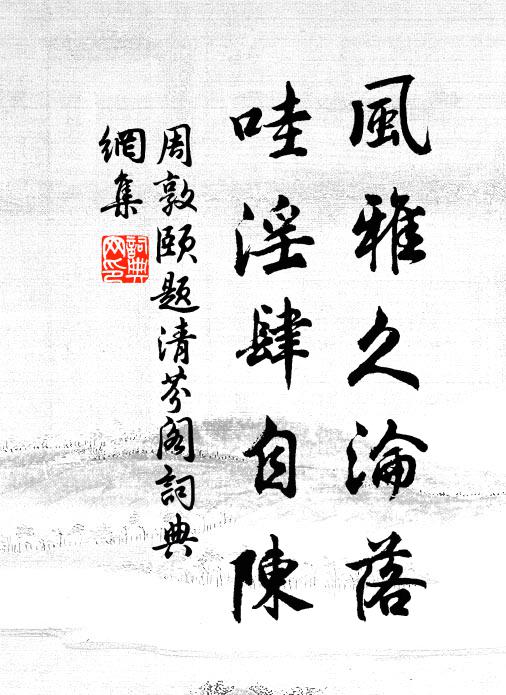 風雅久淪落
哇淫肆自陳
周敦頤題清芬閣詞典
網集
詞典
网印